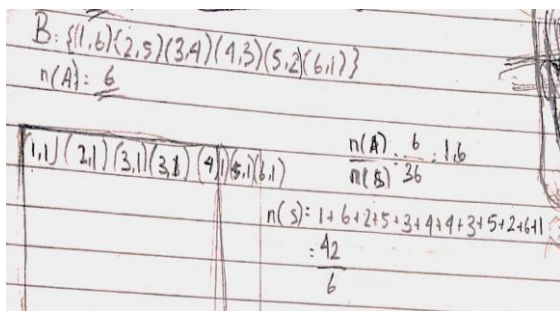 B: {(1,6)(2,5)(3,4)(4,3)(5,2)(6,1)}
n(A): 6
(1,1) (2,1) (3,1)(3,1) (4,1)(5,1)(6,1)
n(A) : 6 : 1,6
n(S) 36
n(s): 1+6+2+5+3+4+4+3+5+2+6+1
= 42
6